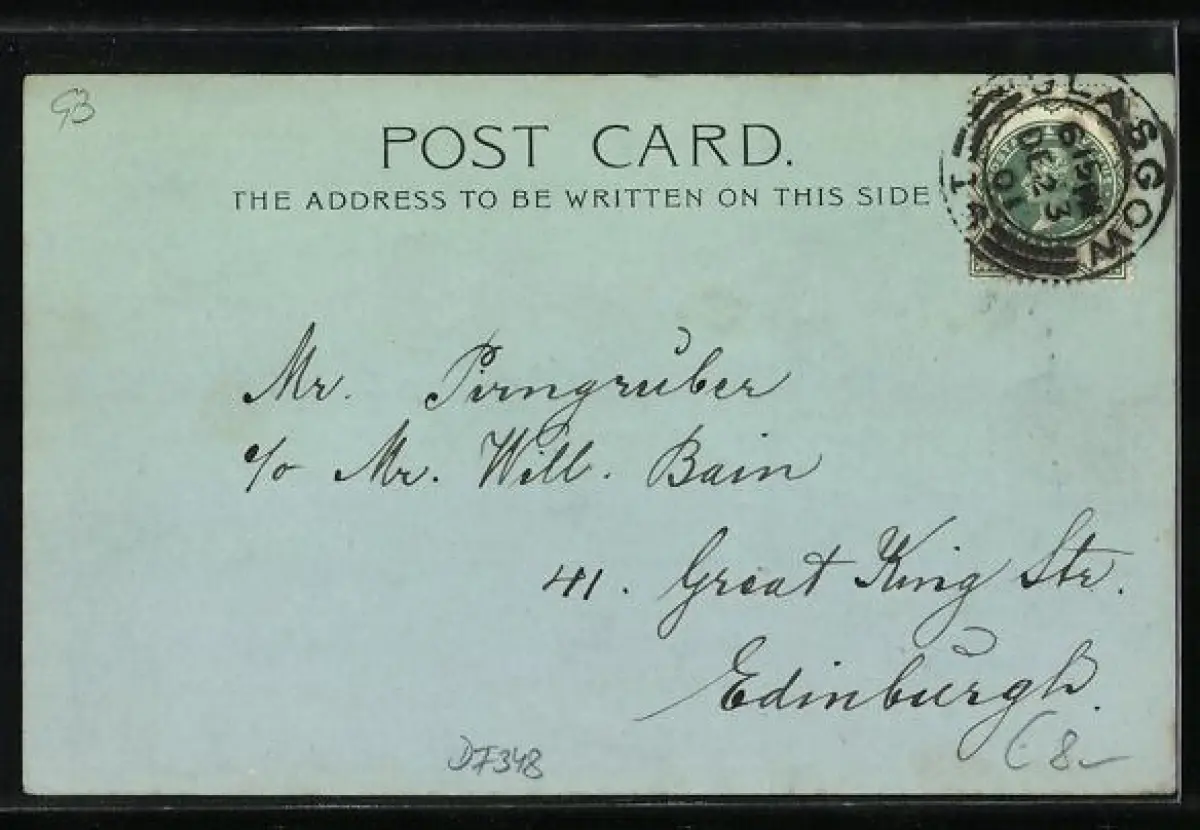 GB
POST CARD.
THE ADDRESS TO BE WRITTEN ON THIS SIDE
GLASGOW
6 15 PM
DE 23
01
Mr. Pirngruber
c/o Mr. Will. Bain
41. Great King Str.
Edinburgh.
DF348
(8-